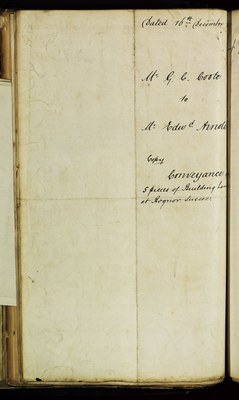 Dated 16th December
Mr G. C. Coote
to
Mr Edwd Arnold
Copy
Conveyance
5 pieces of Building Land
at Bognor Sussex